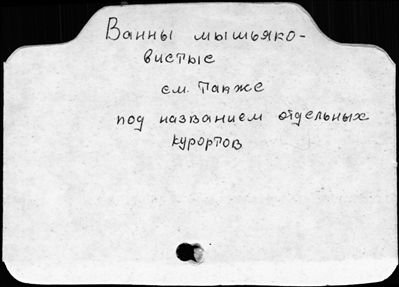 Ванны мышьяко-
вистые
см. также
под названием отдельных
курортов